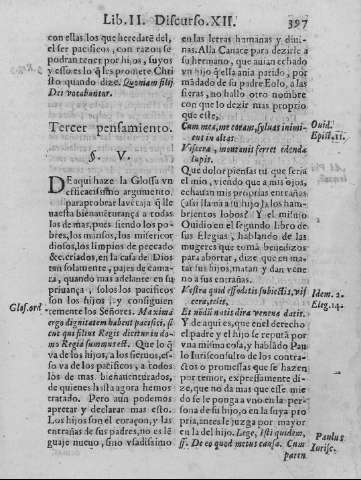 Lib. II. Discurso. XII. 397
con ellas los que heredarẽ del,
el ser pacificos, con razon se
podran tener por hijos, suyos
y esso es lo q̃ les promete Christo
quando dize. Quoniam filij
Dei vocabuntur.
Tercer pensamiento.
§. V.
DE aqui haze la Glossa vn
efficacissimo argumẽto,
para probar la vẽtaja q̃ lleua
esta bienauẽturança a todas
las de mas, pues siendo los pobres,
los mansos, los misericordiosos,
los limpios de peccado
&c. criados, en la casa de Dios
tem solamente, pajes de camara,
quando mas adelante en su
priuança, solos los pacificos
son los hijos, y consiguientemente
los Señores. Maxima
ergo dignitatem habent pacifici, sicut
qui filius Regis dicitur in domo
Regia summus est. Que lo q̃
va de los hijos, a los sieruos, esso
va de los pacificos, a todos
los de mas bienauenturados,
de quienes hasta agora hemos
tratado. Pero aun podemos
apretar y declarar mas esto.
Los hijos son el coraçon, y las
entrañas de sus padres, no es lẽguaje
nueuo, sino vsadissimo
Glos. ord
en las letras humanas y diuinas.
Alla Canace para dezirle a
su hermano, que auian echado
vn hijo q̃ ella auia parido, por
mãdado de su padre Eolo, a las
fieras, no hallo otro nombre
con que lo dezir mas proprio
que este,
Cum mea, me coram, syluas inimicus
in altas
Viscera, montanis ferret edenda
lupis.
Que dolor piensas tu que seria
el mio, viendo que a mis ojos,
echauan mis proprias entrañas
(assi llama a su hijo) a los hambrientos
lobos? Y el mismo
Ouidio en el segundo libro de
sus Elegias, hablando de las
mugeres que toma bebedizos
para abortar, dize que en matar
sus hijos, matan y dan veneno
a sus entrañas.
Vestra quid effoditis subiectis, viscera,
telis,
Et nõdũ natis dira venena datis.
Y de aqui es, que en el derecho
el padre y el hijo se reputã por
vna misma cosa, y hablãdo Paulo
Iurisconsulto de los contrastos
o promessas que se hazen
por temor, expressamente dize,
que no da mas que esse miedo
se le ponga a vno en la persona
de su hijo, o en la suya propria,
antes le juzga por mayor
en la del hijo. Lege, isti quidem,
ff. De eo quod metus causa. Cum
paten
Ouid.
Epist. 11.
Idem. 2.
Eleg. 14.
Paulus
Iurisc.